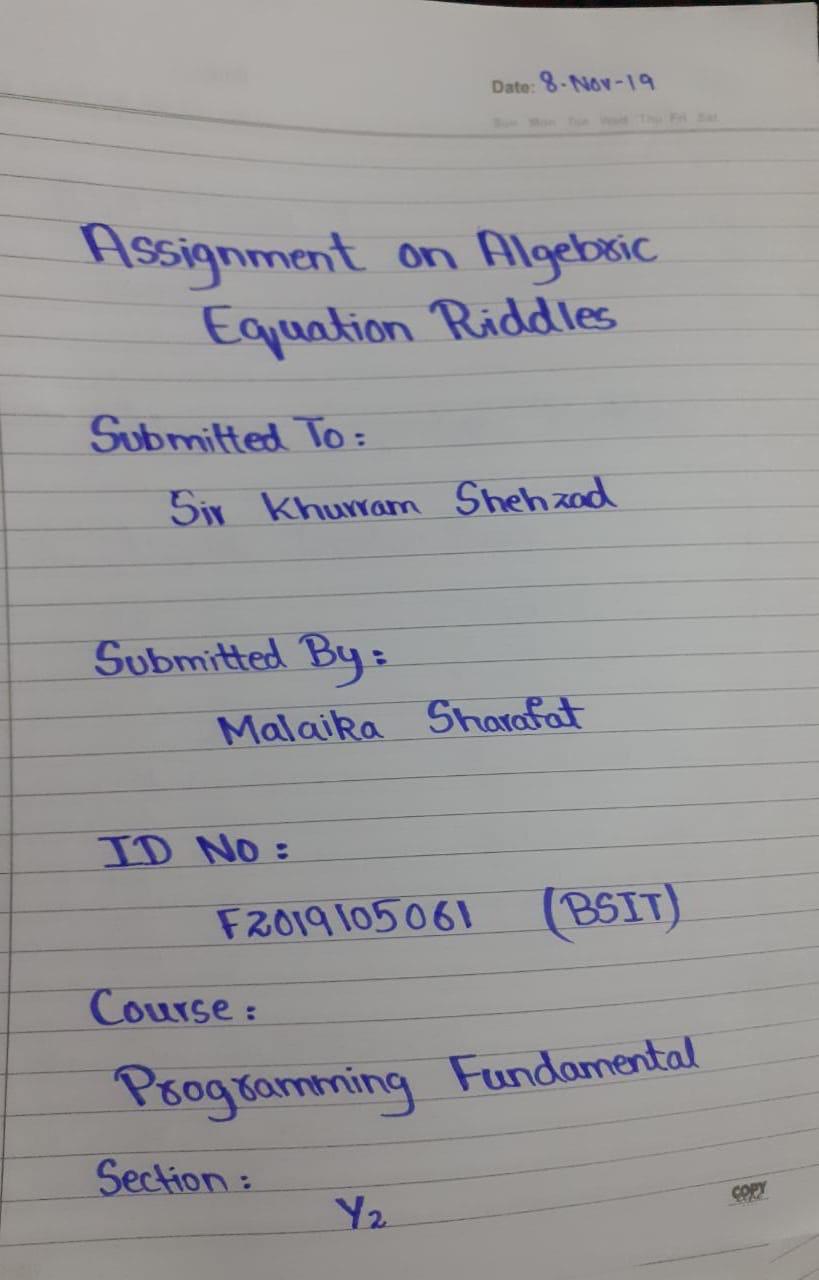 Date: 8-Nov-19
Sun Mon Tue Wed Thu Fri Sat
Assignment on Algebric
Equation Riddles
Submitted To:
Sir Khurram Shehzad
Submitted By:
Malaika Sharafat
ID No:
F2019105061 (BSIT)
Course:
Programming Fundamental
Section:
Y2
COPY